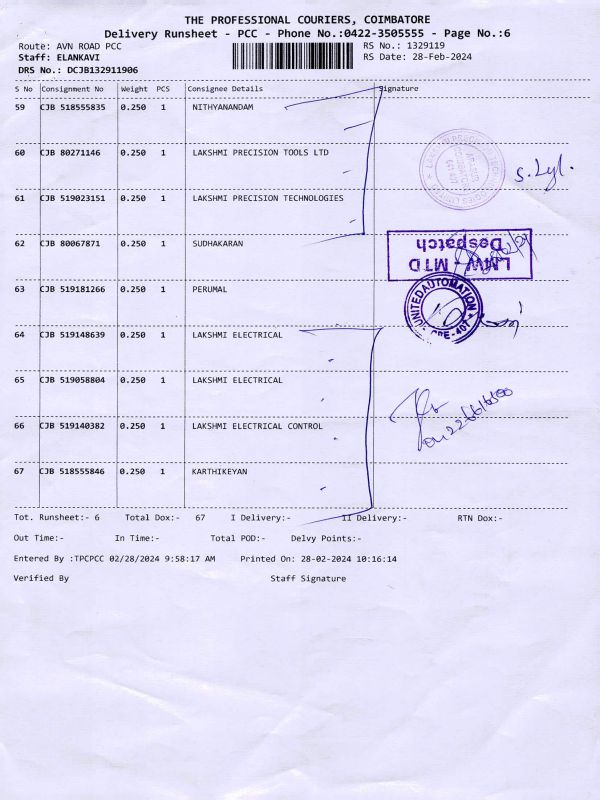 THE PROFESSIONAL COURIERS, COIMBATORE
Delivery Runsheet - PCC - Phone No.:0422-3505555 - Page No.:6
Route: AVN ROAD PCC
RS No.: 1329119
Staff: ELANKAVI
RS Date: 28-Feb-2024
DRS No.: DCJB132911906
S No Consignment No Weight PCS Consignee Details Signature
59 CJB 518555835 0.250 1 NITHYANANDAM
60 CJB 80271146 0.250 1 LAKSHMI PRECISION TOOLS LTD
61 CJB 519023151 0.250 1 LAKSHMI PRECISION TECHNOLOGIES
62 CJB 80067871 0.250 1 SUDHAKARAN
LMW - MTD
Despatch
63 CJB 519181266 0.250 1 PERUMAL
UNITED AUTOMATION
64 CJB 519148639 0.250 1 LAKSHMI ELECTRICAL
65 CJB 519058804 0.250 1 LAKSHMI ELECTRICAL
66 CJB 519140382 0.250 1 LAKSHMI ELECTRICAL CONTROL
67 CJB 518555846 0.250 1 KARTHIKEYAN
Tot. Runsheet:- 6 Total Dox:- 67 I Delivery:- II Delivery:- RTN Dox:-
Out Time:- In Time:- Total POD:- Delvy Points:-
Entered By :TPCPCC 02/28/2024 9:58:17 AM Printed On: 28-02-2024 10:16:14
Verified By Staff Signature